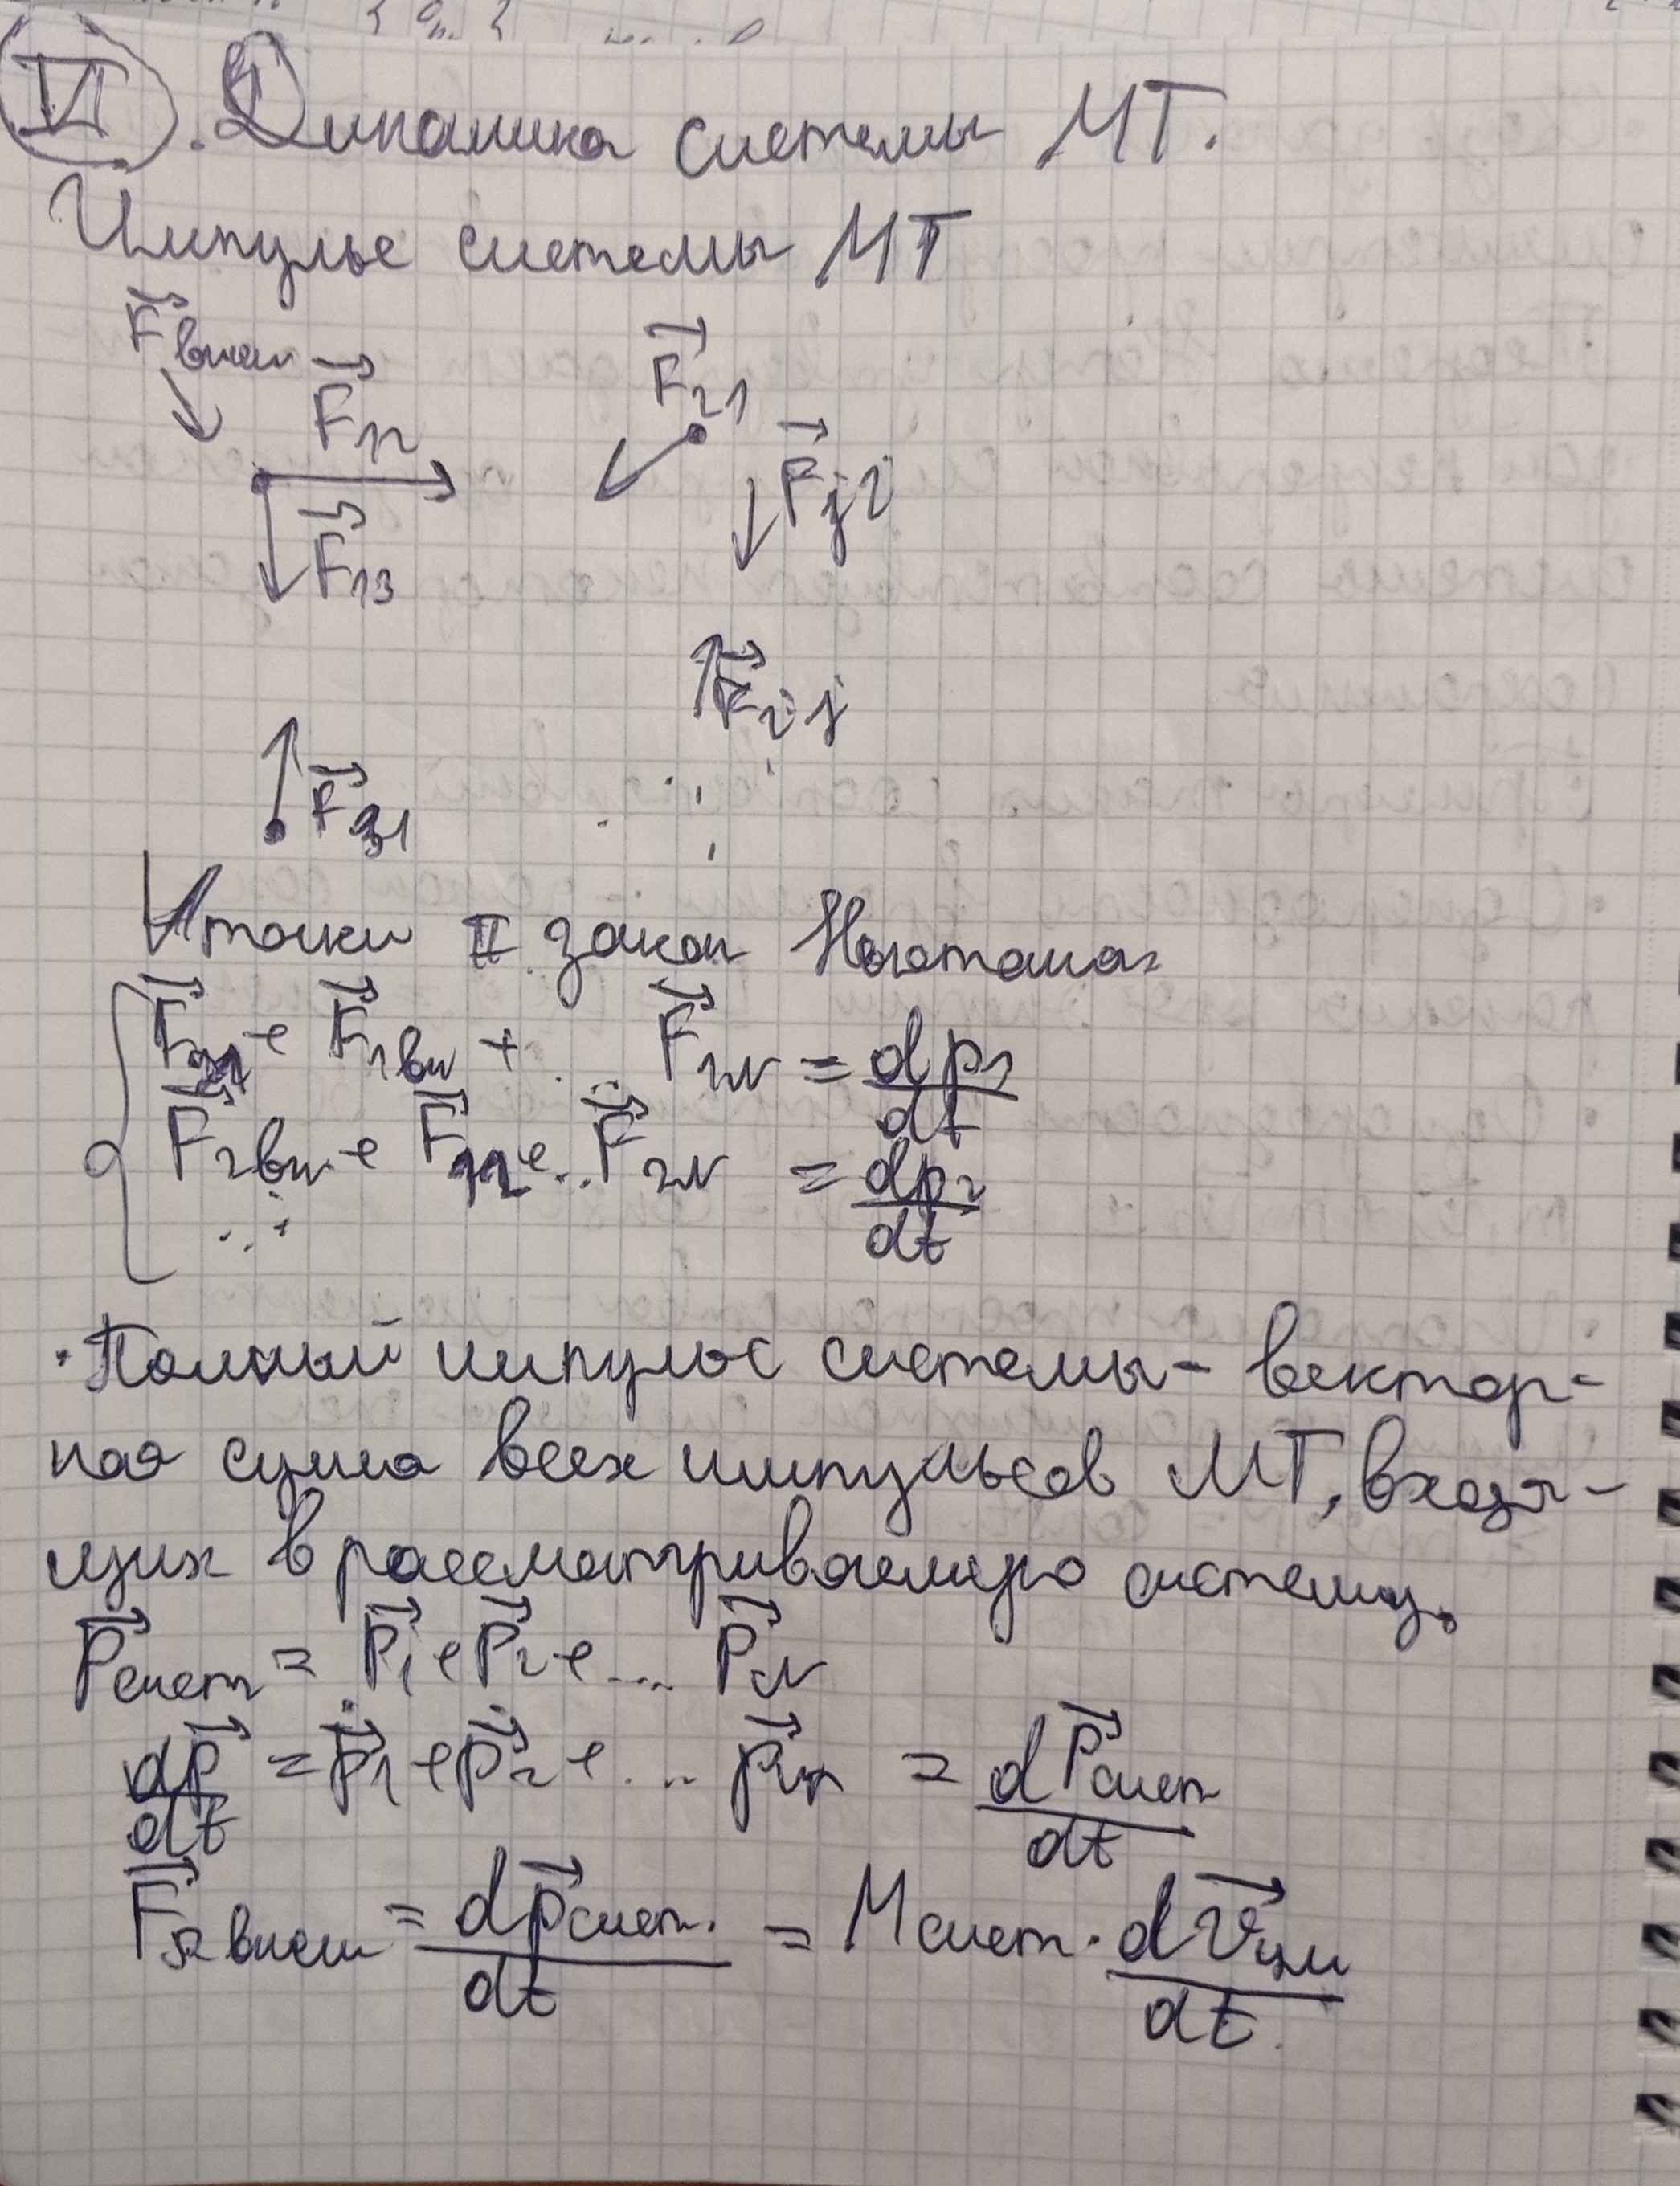 VI. Динамика системы МТ.
Импульс системы МТ
F⃗внеш F⃗12 F⃗21
F⃗13 F⃗ji
F⃗ij
F⃗31
∀ точки II закон Ньютона:
F⃗21 + F⃗1вн + ... F⃗1N = dp1/dt
F⃗2вн + F⃗12 + ... F⃗2N = dp2/dt
...
· Полный импульс системы – вектор-
ная сумма всех импульсов МТ, входя-
щих в рассматриваемую систему.
P⃗сист = P⃗1 + P⃗2 + ... P⃗N
dp⃗/dt = p⃗̇1 + p⃗̇2 + ... p⃗N = dP⃗сист/dt
F⃗Σ внеш = dp⃗сист./dt = Mсист. · dv⃗цм/dt